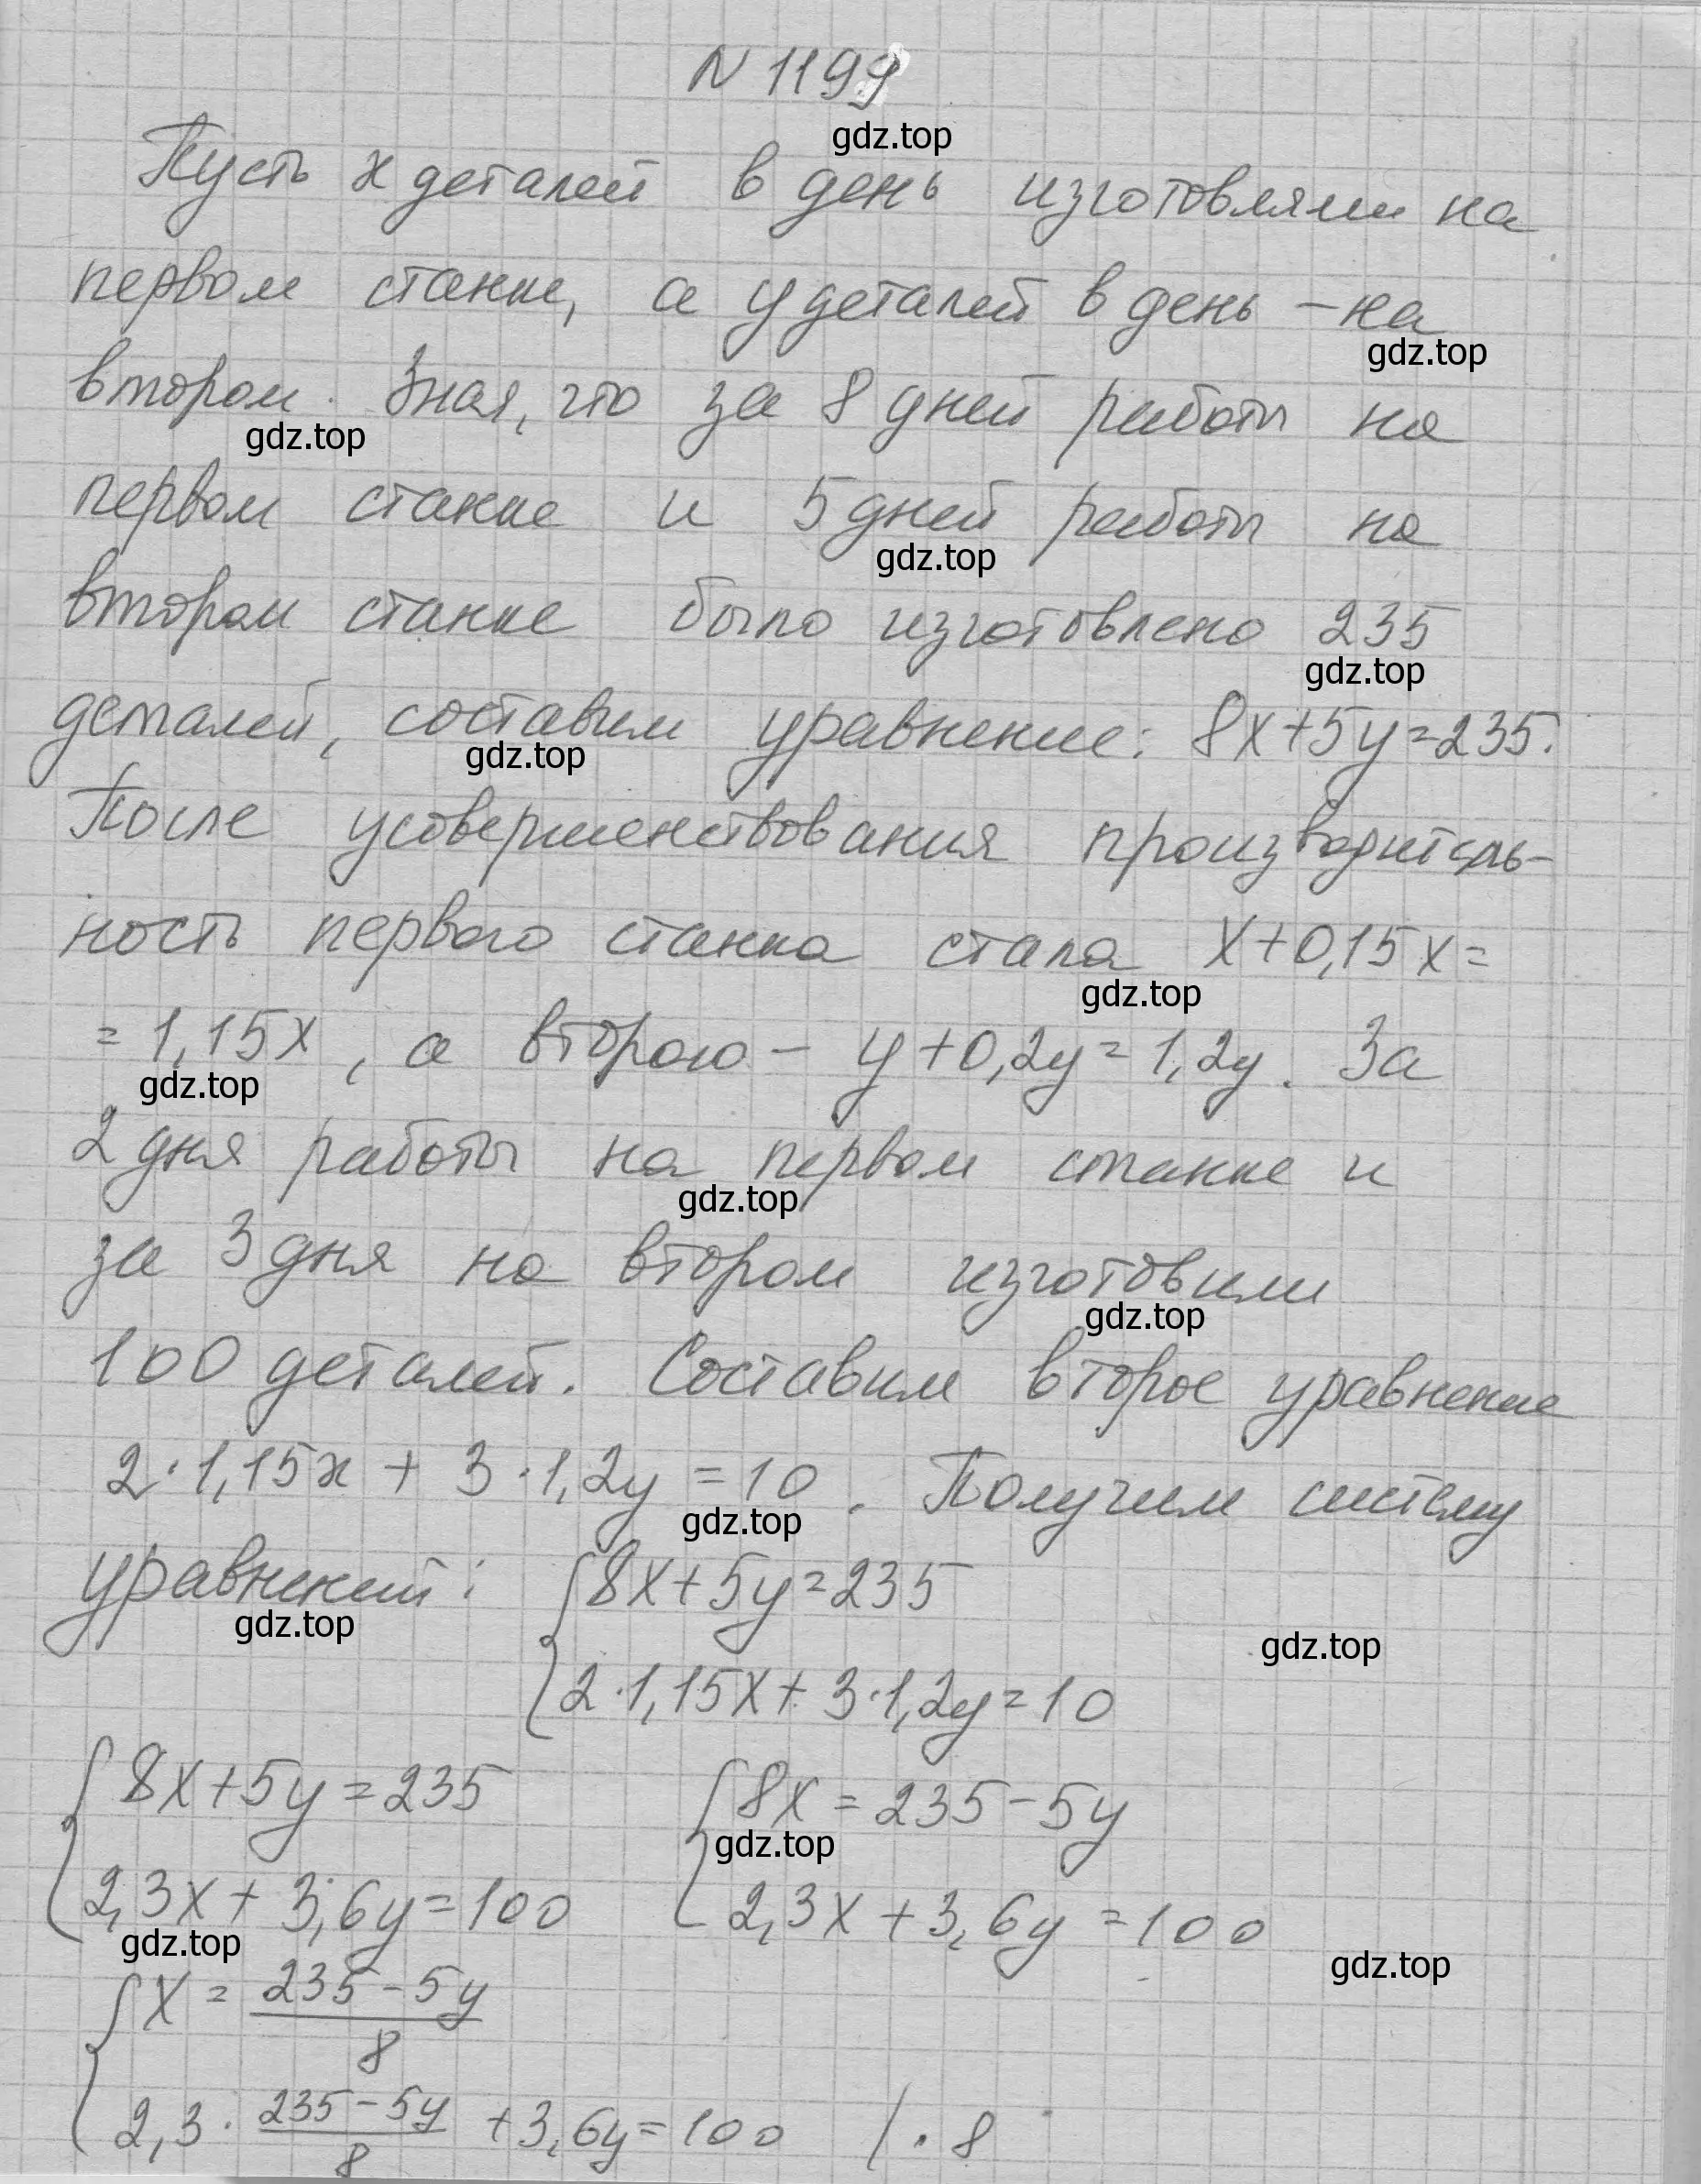 N 1199
gdz.top
Пусть x деталей в день изготовляли на
первом станке, а y деталей в день – на
gdz.top
втором. Зная, что за 8 дней работы на
gdz.top
первом станке и 5 дней работы на
gdz.top
втором станке было изготовлено 235
gdz.top
деталей, составим уравнение: 8x+5y=235.
gdz.top
После усовершенствования производитель-
ность первого станка стала x+0,15x=
gdz.top
=1,15x, а второго – y+0,2y=1,2y. За
gdz.top
2 дня работы на первом станке и
gdz.top
за 3 дня на втором изготовили
gdz.top
100 деталей. Составим второе уравнение
2·1,15x + 3·1,2y = 10. Получим систему
gdz.top
уравнений: { 8x+5y=235
gdz.top
gdz.top
2·1,15x + 3·1,2y=10
{ 8x+5y=235 { 8x = 235-5y
gdz.top
2,3x + 3,6y=100 2,3x + 3,6y = 100
gdz.top
gdz.top
{ x = (235-5y)/8
2,3 · (235-5y)/8 + 3,6y = 100 / · 8